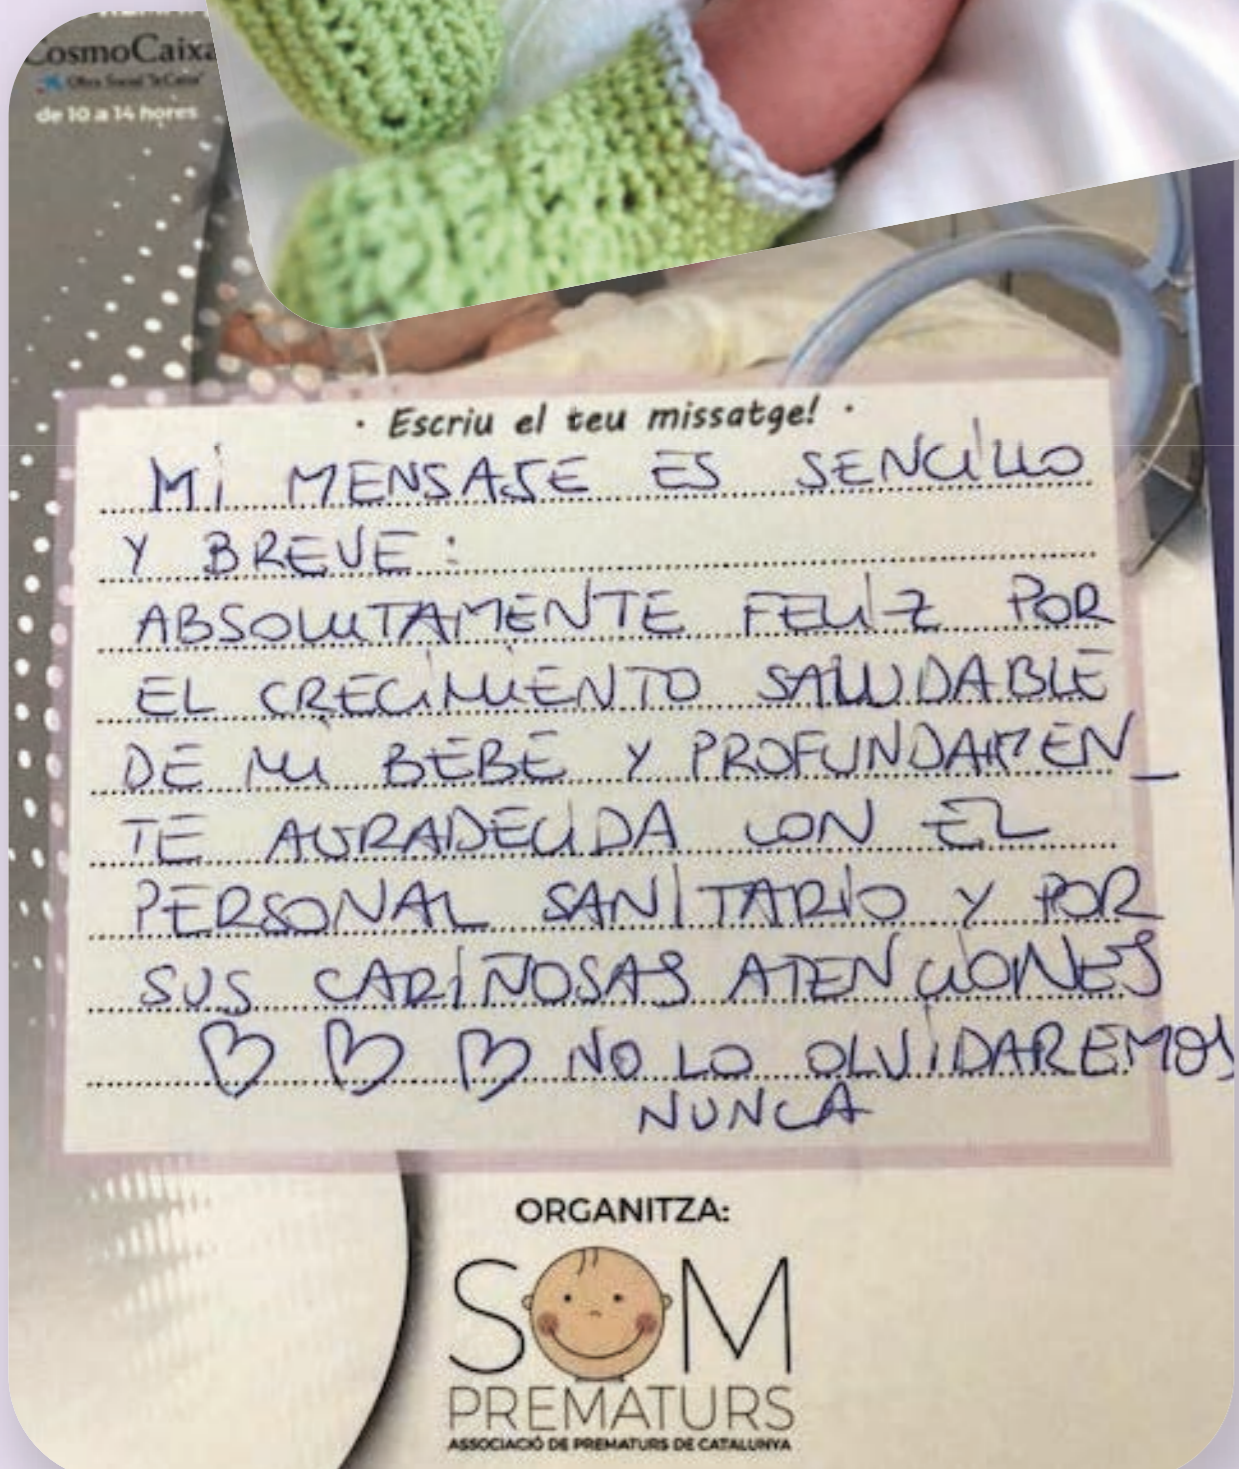 CosmoCaixa
Obra Social "la Caixa"
de 10 a 14 hores
· Escriu el teu missatge! ·
Mi MENSAJE ES SENCiLLO
Y BREVE:
ABSOLUTAMENTE FELiZ POR
EL CRECiMiENTO SALUDABLE
DE Mi BEBE Y PROFUNDAMEN_
TE AGRADECiDA CON EL
PERSONAL SANiTARiO Y POR
SUS CARiÑOSAS ATENCiONES
♡ ♡ ♡ NO LO OLViDAREMOS
NUNCA
ORGANITZA:
SOM
PREMATURS
ASSOCIACIÓ DE PREMATURS DE CATALUNYA